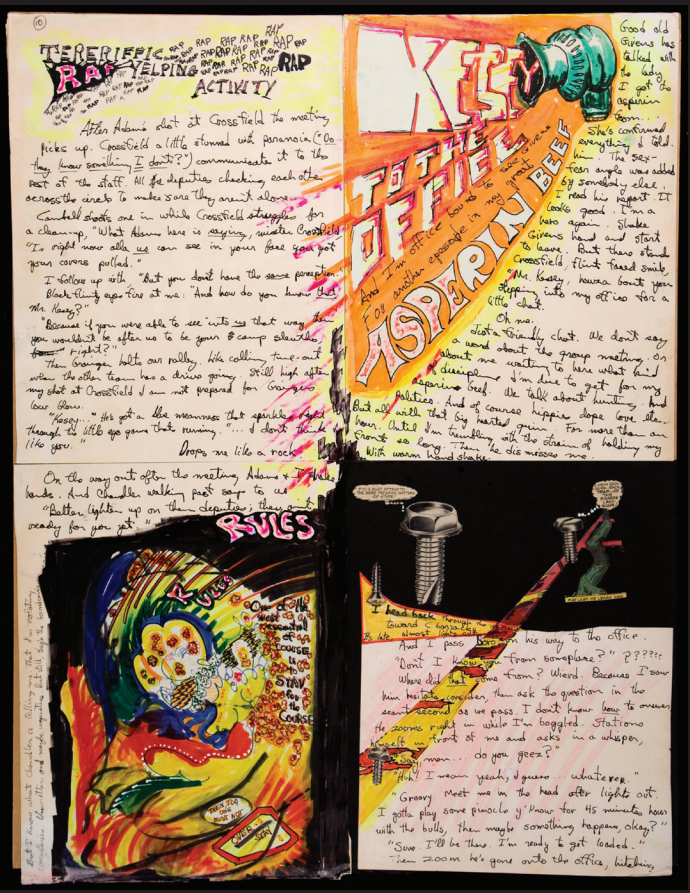 10
TERERIEFIC
RAP YELPING
RAP RAP RAP RAP RAP RAP RAP
ACTIVITY
After Adam's shot at Crossfield the meeting
picks up. Crossfield a little stunned with paranoia ("Do
they know something I don't?") communicates it to the
rest of the staff. All the deputies checking each other
across the circle to make sure they aren't alone.
shoots one in while Crossfield struggles for
a cleanup, "What Adams here is saying, mister Crossfield
is right now alla us can see in your face you got
your covers pulled."
I follow up with, "But you don't have the same perception."
Black flinty eyes fire at me: "And how do you know that,
Mr. Kesey?"
"Because if you were able to see into us that way then
you wouldn't be after us to be your camp sleuths,
right?"
Then Granger halts our rally, like calling time-out
when the other team has a drive going. Still high after
my shot at Crossfield I am not prepared for Grangers
low blow.
"Kesey..." He's got a meanness that sparkles right
through to little eye gave that warning. "... I don't think I
like you."
Drops me like a rock
On the way out after the meeting, Adams & I shake
hands. And Chandler walking past says to us
"Better lighten up on them deputies; they aint
ready for you yet."
RULES
RULES
One of the
most
essential
of
COURSE
is
to
STAY
on
the
COURSE
THEN TOO
ONE
MUST NOT
OVER
STAY
But I know what Chandler is telling me that I'm violating
KESEY
TO THE
OFFICE
And I'm office bound to see Givens
For another episode in my great
ASPERIN BEEF
Good old
Givens has
talked with
the lady
I got the
asperin
from...
She's confirmed
everything I told
him. The sex-
fear angle was added
by somebody else.
I read his report. It
looks good. I'm a
hero again. Shake
Givens hand and start
to leave. But there stands
Crossfield, flint faced smile,
"Mr. Kesey, howza bout you
stepping into my office for a
little chat."
Oh me.
Just a friendly chat. We don't say
a word about the group meeting. Or
about me waiting to hear what kind
of discipline I'm due to get for my
asperins beef. We talk about hunting. And
politics. And of course hippie dope love
But all with that big hearted grin. For more than an
hour. Until I'm trembling with the strain of holding my
front so long. Then he dismisses me.
With warm handshake.
I head back through the
toward C barracks
Its late, almost lights out.
And I pass on his way to the office.
"Don't I know you from someplace?" ?????
Where did that come from? Wierd. Because I saw
him hesitate, consider, then ask the question in the
scant second as we pass. I don't know how to answer.
He zooms right in while I'm boggled. Stations
himself in front of me and asks in a whisper,
"Say, man... do you geez?"
"Huh? I mean yeah, I guess... whatever."
"Groovy. Meet me in the head after lights out.
I gotta play some pinocle y'know for 45 minutes hour
with the bulls, then maybe something happens, okay?"
"Sure. I'll be there. I'm ready to get loaded."
Then zoom he's gone onto the office, hitching